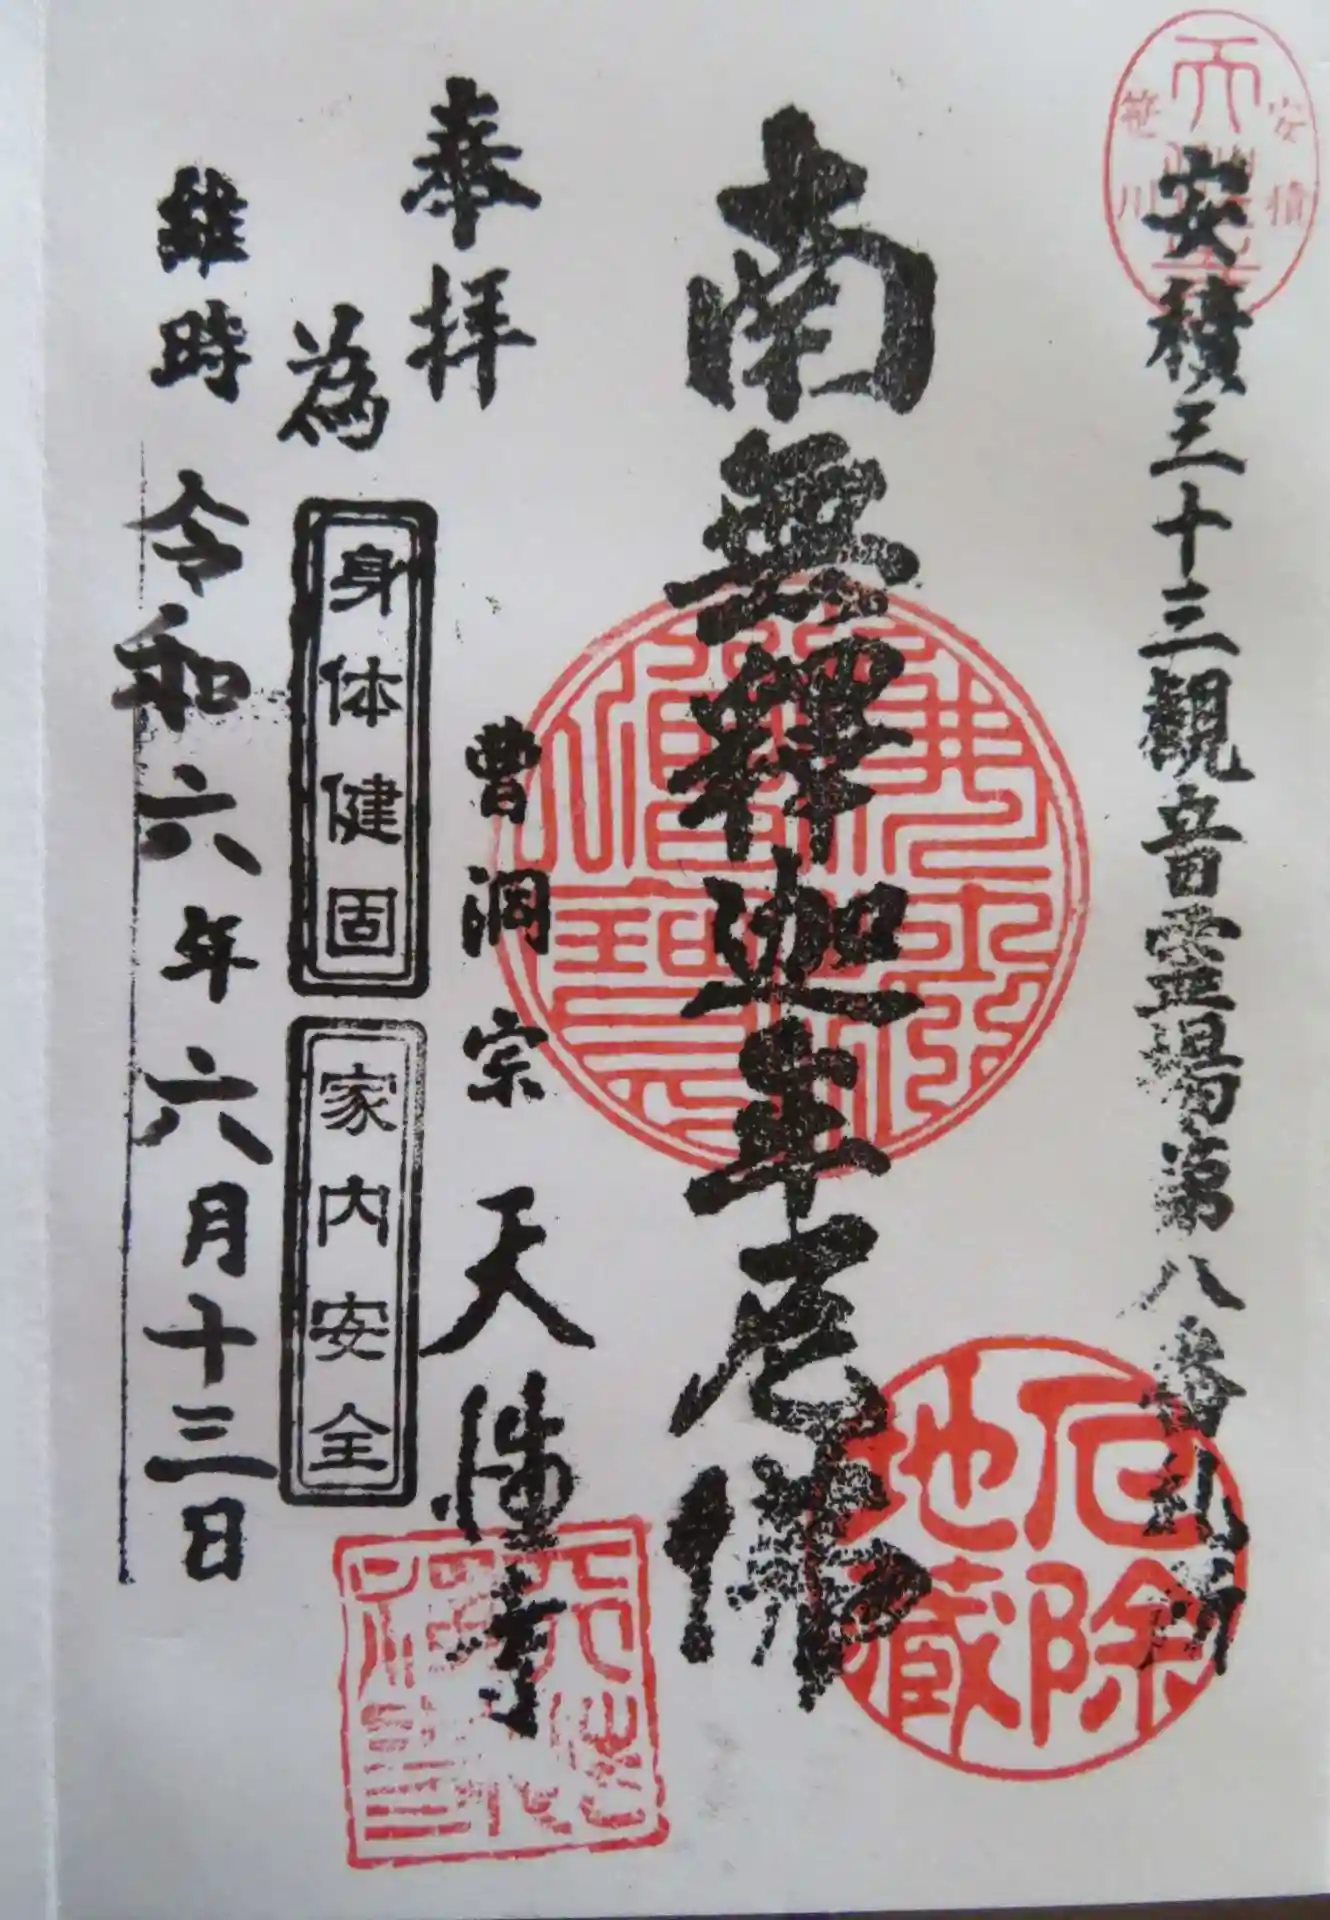 安積三十三観音霊場第八番札所
安積
天
笹川
南無釋迦牟尼佛
厄除
地蔵
奉拝
曹洞宗 天性寺
為
身体健固
家内安全
維時 令和六年六月十三日